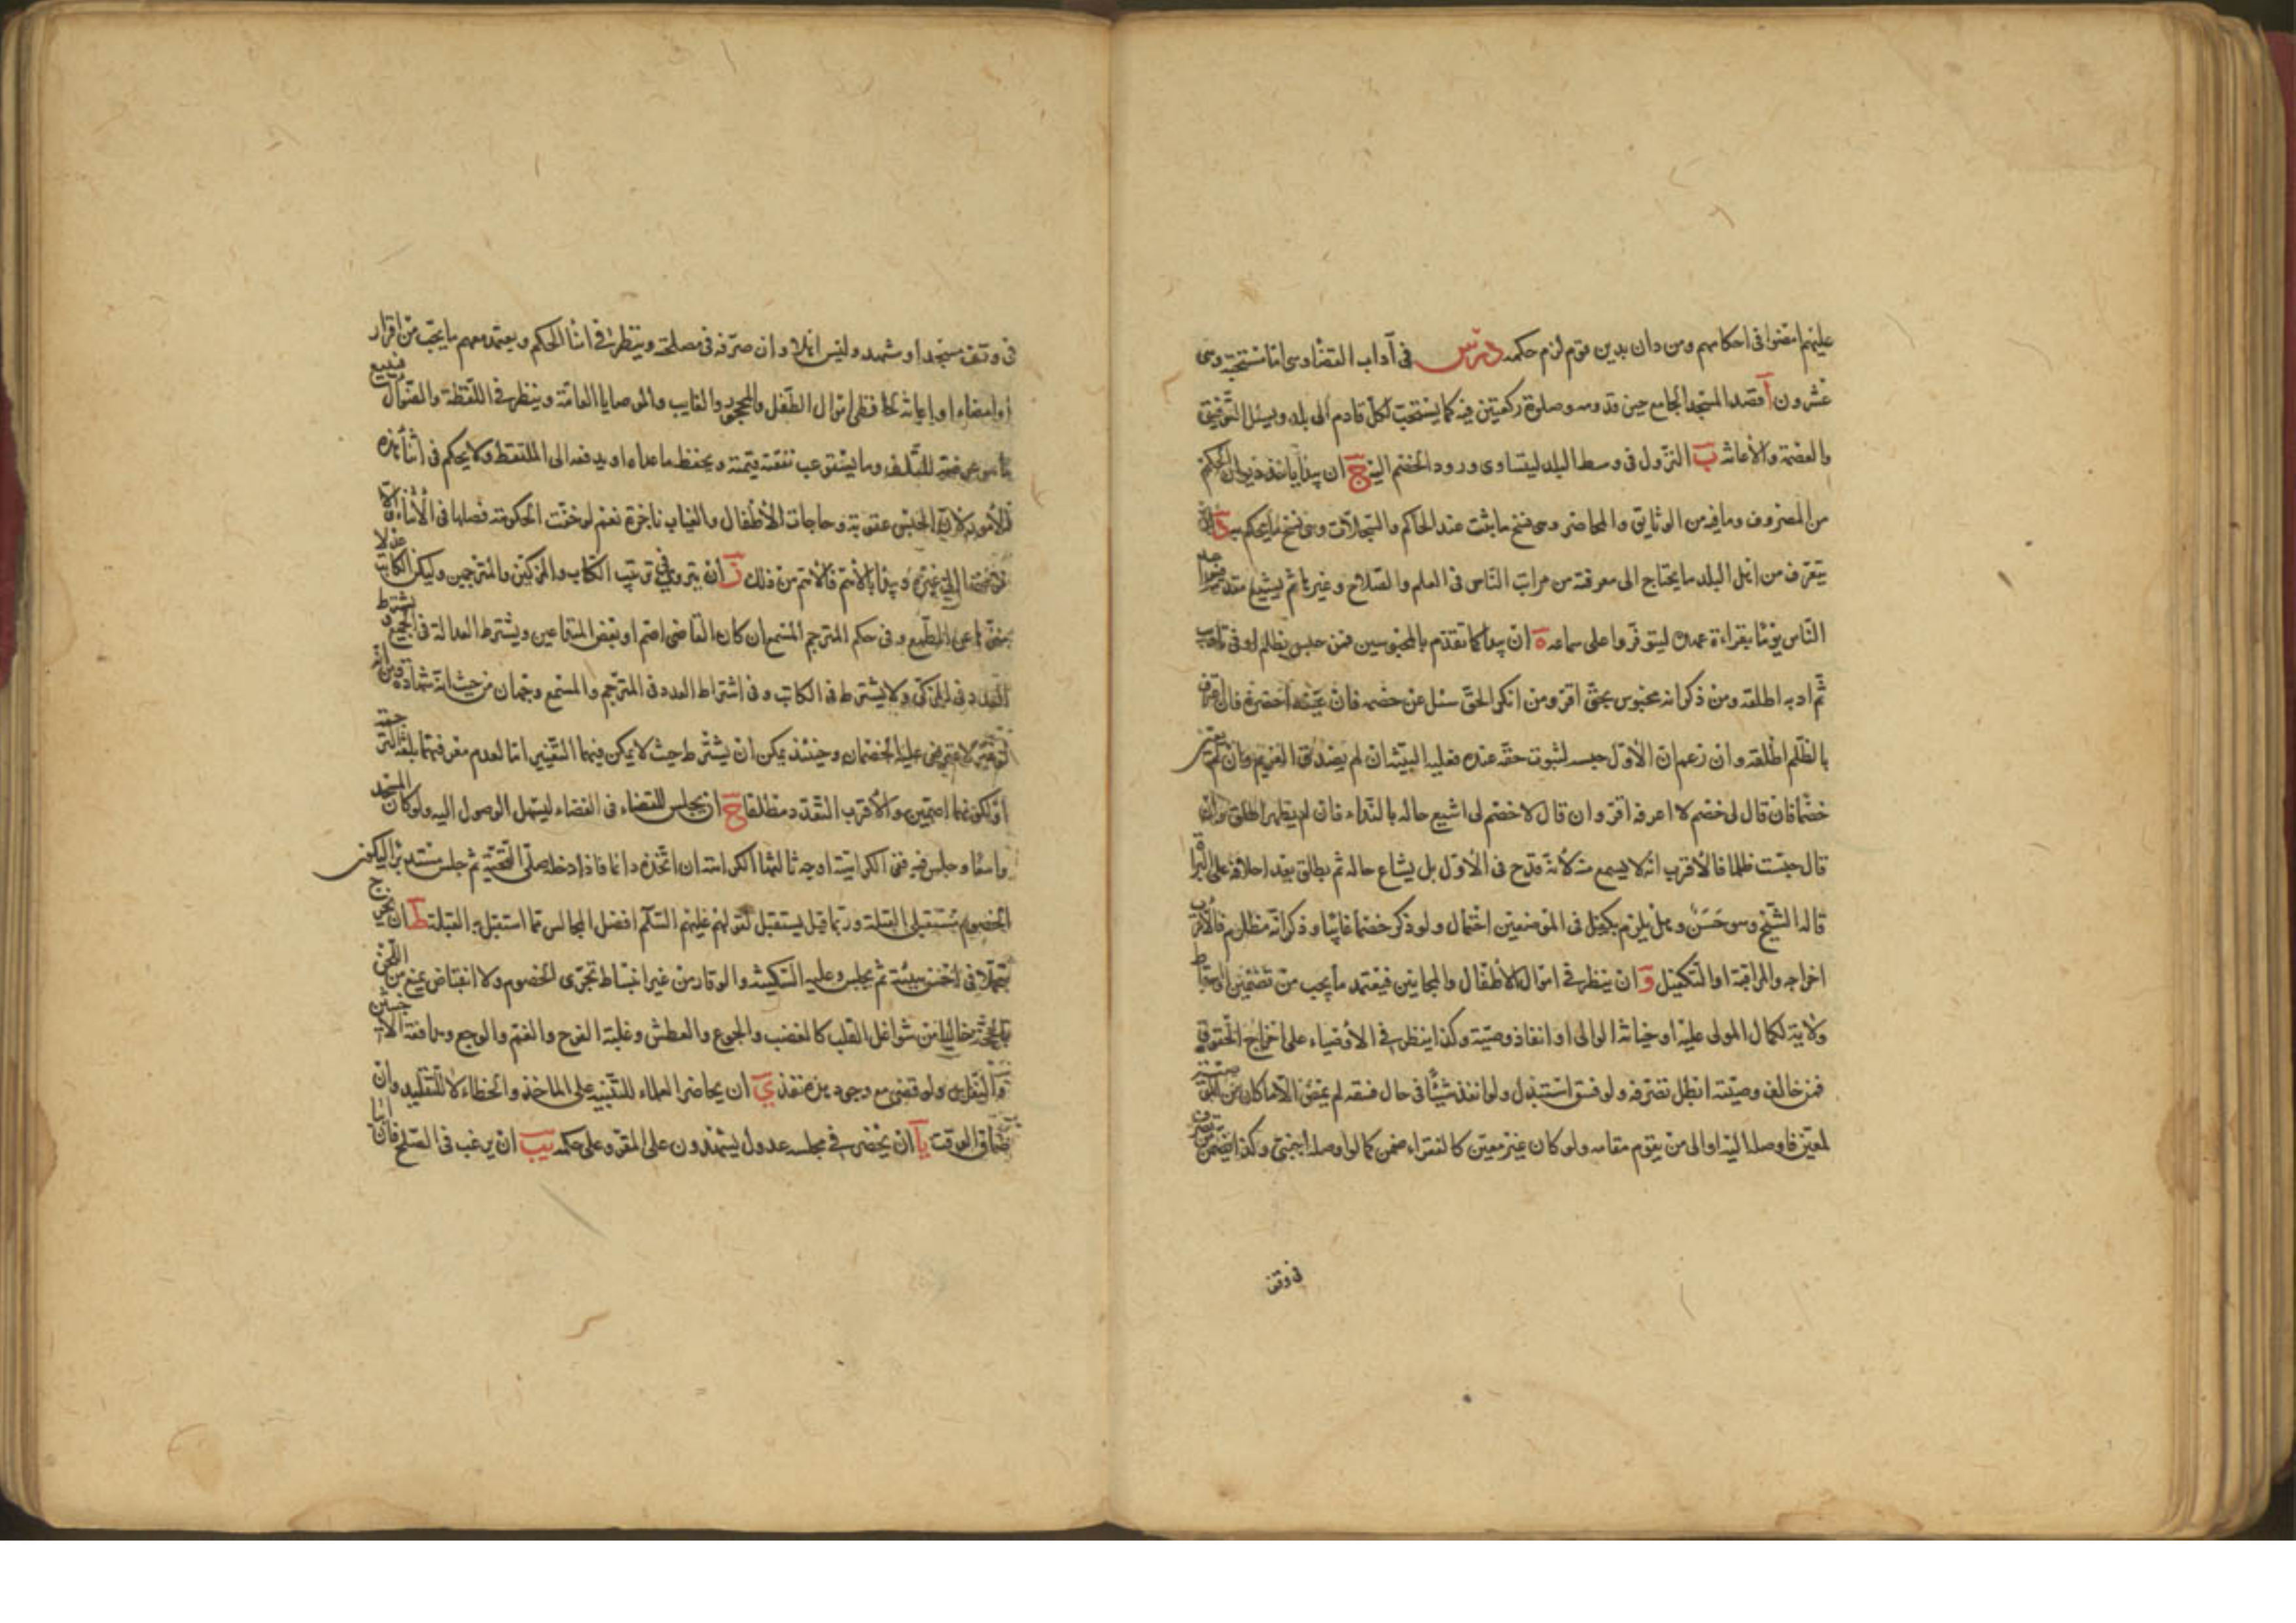 عليهم امضوا فى احكامهم ومن دان بدين قوم لزم حكمه درس فى آداب القضاء وهى اما مستحبة وهى
عشرون آ قصد المسجد الجامع حين قدومه وصلوة ركعتين فيه كما يستحب لكل قادم الى بلد ويسئل التوفيق
والعصمة والاعانة ب النزول فى وسط البلد ليتساوى ورود الخصم اليه ج ان يبدأ باخذ ديوان الحكم
من المصروف وما فيه من الوثايق والمحاضر وهى نسخ ما يثبت عند الحاكم والسجلات وهى نسخ ما يحكم به د ان
يتعرف من اهل البلد ما يحتاج الى معرفته من مراتب الناس فى العلم والصلاح وغيرها ثم يشيع
الناس يوما بقراءة عهده ليتوفروا على سماعه ه ان يبدأ كما تقدم بالمحبوسين فمن حبس بظلم او فى تأديب
ثم ادبه اطلقه ومن ذكر انه محبوس بحق اقر ومن انكر الحق سئل عن خصمه فان عينه احضره فان اعترف
بالظلم اطلقه وان زعم ان الاول حبسه لثبوت حقه عنده فعليه البينة ان لم يصدقه الغريم وان لم يعين
خصما فان قال لى خصم لا اعرفه اقر وان قال لا خصم لى اشيع حاله بالنداء فان لم يظهر اطلق وان
قال حبست ظلما فالاقرب انه لا يسمع منه لانه قدح فى الاول بل يشاع حاله ثم يطلق بعد احلافه على البراءة
قاله الشيخ وهو حسن وهل يلزم بكفيل فى الموضعين احتمال ولو ذكر خصما غائبا وذكر انه مظلوم فالاقرب
اخراجه والمراقبة او التكفيل و ان ينظر فى اموال الاطفال والمجانين فيعتمد ما يجب من تضمين او اسقاط
ولاية لكمال المولى عليه او خيانة الوالى او انفاذ وصية وكذا ينظر فى الاوصياء على اخراج الحقوق
فمن خالف وصيته ابطل تصرفه ولو فسق استبدل ولو انفذ شيئا فى حال فسقه لم يمض الا ما كان من
لمعين فاوصله اليه او الى من يقوم مقامه ولو كان غير معين كالفقراء ضمن كما لو اوصله اجنبى وكذا يضمن من تصرف
فى وقف
فى وقف مسجد او مشهد وليس اهلا وان صرفه فى مصلحته وينظر فى امناء الحكم ويعتمد معهم ما يجب من اقرار
او امضاء او اعانة لحافظى اموال الطفل والمحجور والغايب والوصايا العامة وينظر فى اللقطة والضوال فيبيع
ما هو عرضة للتلف وما يستوعب نفقته قيمته ويحفظ ما عداه او يدفعه الى الملتقط ولا يحكم فى اثناء هذه
الامور لان الحبس عقوبة وحاجات الاطفال والغياب ناجزة نعم لو خفت الحكومة فصلها فى الاثناء والا
فوضها الى غيره ويبدأ بالاهم فالاهم من ذلك ز ان يتروى فى ترتيب الكتاب والمزكين والمترجمين وليكن الكاتب عدلا
عن الطمع وفى حكم المترجم المسمع ان كان القاضى اصم او بعض المتداعيين ويشترط العدالة فى الجميع ويشترط
التعدد فى المزكى ولا يشترط فى الكاتب وفى اشتراط العدد فى المترجم والمسمع وجهان من حيث انه شهادة ومن انه
الخصمان وحينئذ يمكن ان يشترط حيث لا يمكن فيهما التغيير اما لعدم معرفتهما بلغة الترجمة
او لكونهما اصمين والاقرب التعدد مطلقا ح ان يجلس للقضاء فى الفضاء ليسهل الوصول اليه ولو كان المسجد
واسعا وجلس فيه ففى الكراهية اوجه ثالثها الكراهة ان اتخذه دائما فاذا دخله صلى التحية ثم جلس مستدبرا ليكون
الخصوم مستقبلى القبلة وربما قيل يستقبل لقولهم عليهم السلم افضل المجالس ما استقبل به القبلة ط ان يخرج
متجملا فى احسن هيئة ثم يجلس وعليه السكينة والوقار من غير انبساط تجرى الخصوم ولا انقباض يمنع من اللحن
بالحجة خاليا من شواغل القلب كالغضب والجوع والعطش وغلبة الفرح والغم والوجع ومدافعة الاخبثين
ولو قضى مع وجود هذه نفذ ى ان يحاضر العلماء للتنبيه على الماخذ والخطاء لا للتقليد وان
ضاق الوقت يا ان يحضر فى مجلسه عدول يشهدون على المقر وعلى حكمه يب ان يرغب فى الصلح فان ابيا